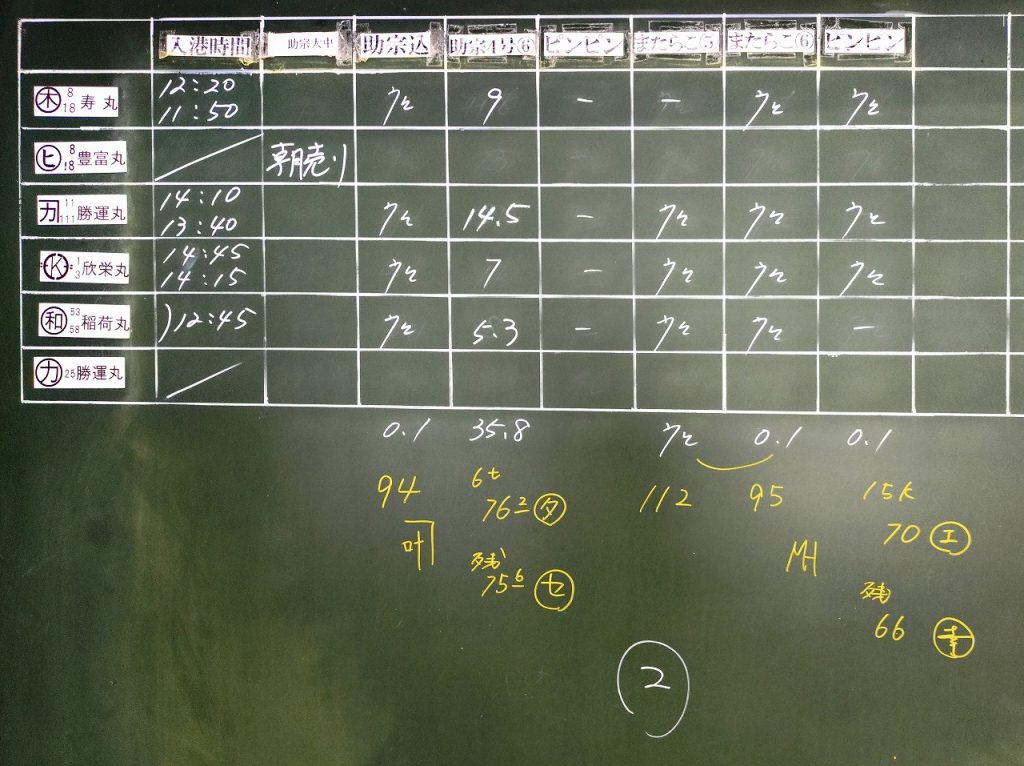 入港時間 助宗大中 助宗込 助宗4号⑥ ピンピン またらこ⑤ またらこ⑥ ピンピン
木 8 18 寿丸 12:20 11:50 ウと 9 - - ウと ウと
ヒ 8 18 豊富丸 朝売り
カ 11 111 勝運丸 14:10 13:40 ウと 14.5 - ウと ウと ウと
K 1 3 欣栄丸 14:45 14:15 ウと 7 - ウと ウと ウと
和 53 58 稲荷丸 )12:45 ウと 5.3 - ウと ウと -
カ 25 勝運丸
0.1 35.8 ウと 0.1 0.1
94 6t 112 95 15K
76² タ 70 エ
叶 MH
残 残
75⁶ セ 66
2